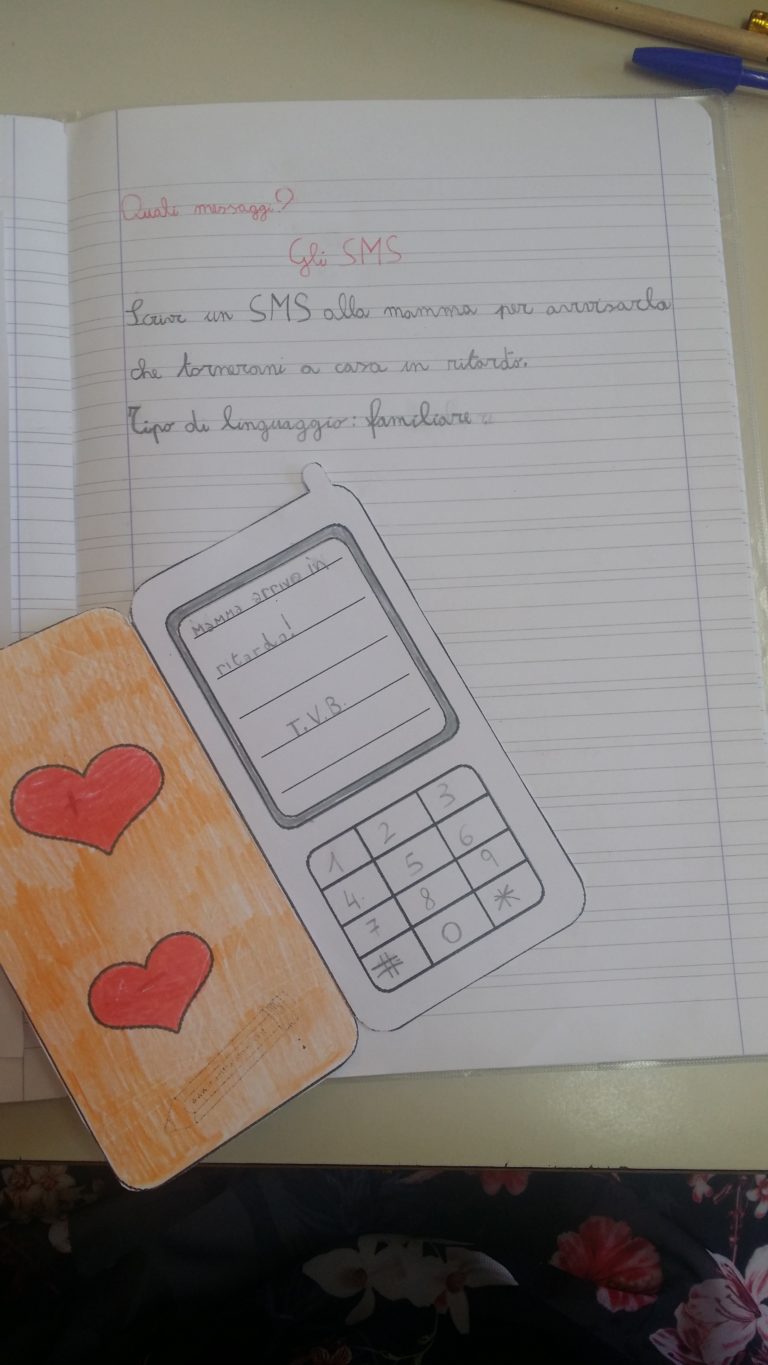 Quali messaggi?
Gli SMS
Scrivi un SMS alla mamma per avvisarla
che tornerani a casa in ritardo.
Tipo di linguaggio: familiare
Mamma arrivo in
ritardo!
T.V.B.
1 2 3
4 5 6
7 8 9
# 0 *